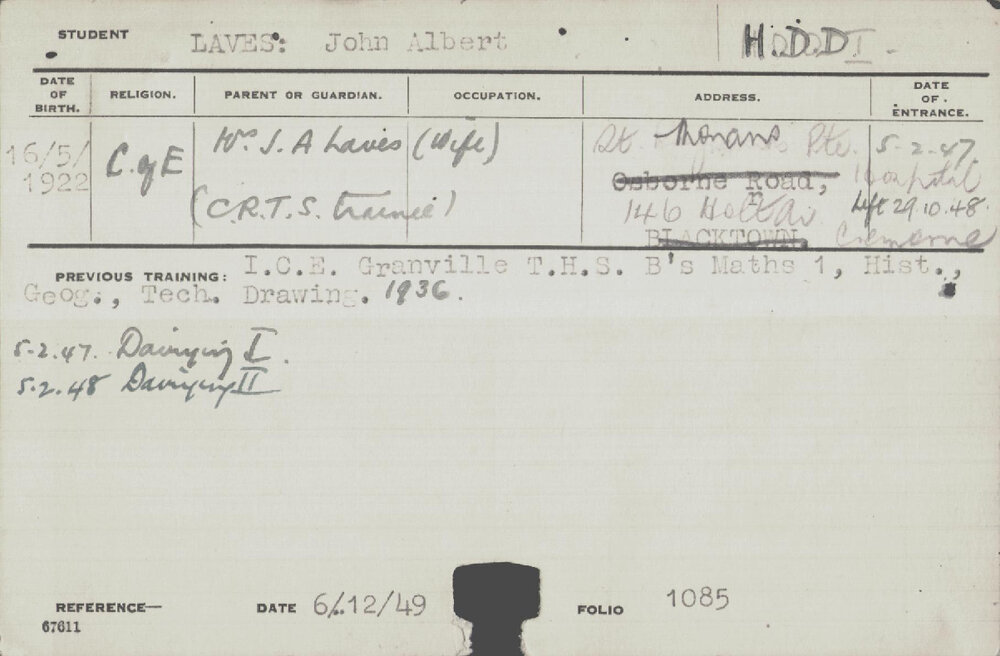 STUDENT LAVES: John Albert H.D.D I.
DATE OF BIRTH. RELIGION. PARENT OR GUARDIAN. OCCUPATION. ADDRESS. DATE OF. ENTRANCE.
16/5/1922 C. of E Mrs J. A Laves (Wife) Pte. 5-2-47.
Osborne Road, Hospital
(C.R.T.S. trainee) 146 Holt Av. Left 29.10.48.
BLACKTOWN. Cremorne
PREVIOUS TRAINING: I.C.E. Granville T.H.S. B's Maths 1, Hist.,
Geog., Tech. Drawing. 1936.
5-2.47. Dairying I.
5.2.48 Dairying II
REFERENCE— DATE 6/.12/49 FOLIO 1085
67611